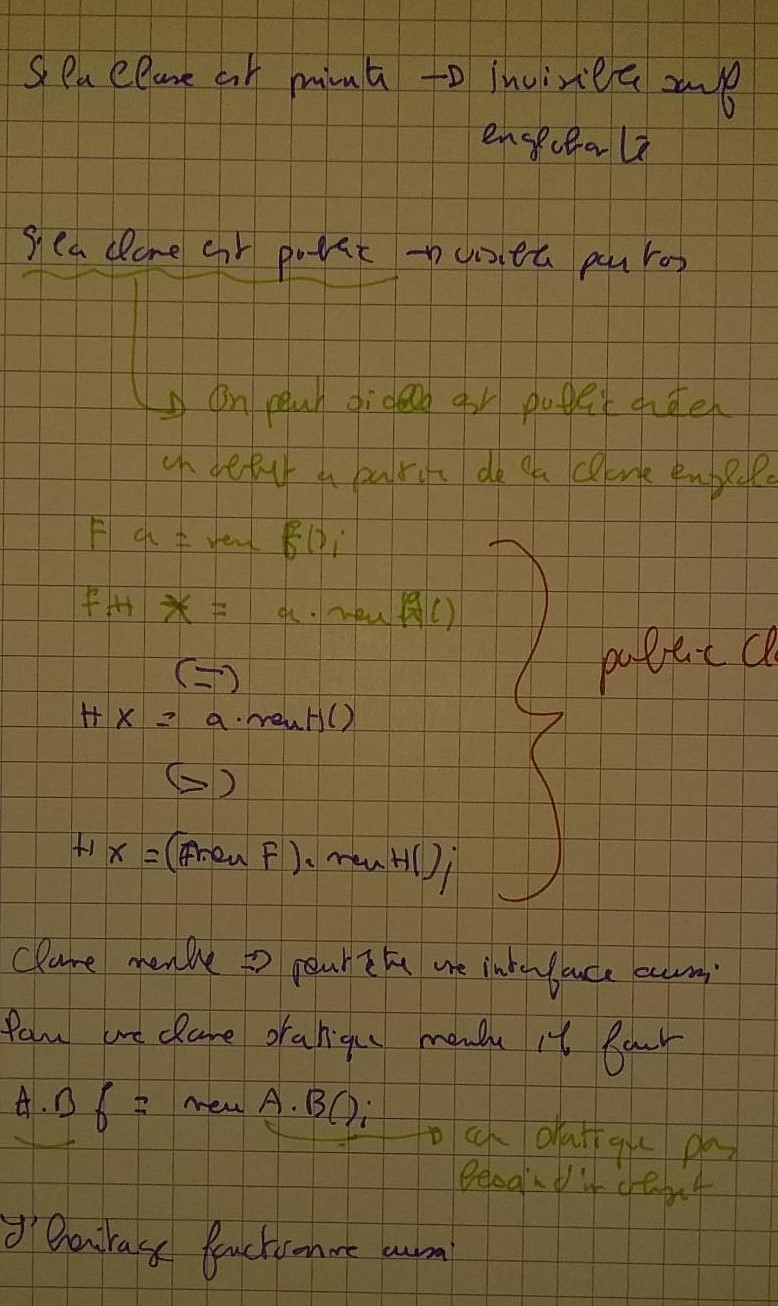 Si la classe est private → invisible sauf
englobante
Si la classe est public → visible partout
→ On peut si elle est public créer
un objet a partir de la classe engloba
F a = new F();
F H x = a.new H()
(=)
H x = a.new H()
public cla
(=)
H x = (new F).new H();
Classe membre ⇒ peut être une interface aussi
Pour une classe statique membre il faut
A.B f = new A.B();
→ car statique pas
besoin d'un objet
L'héritage fonctionne aussi